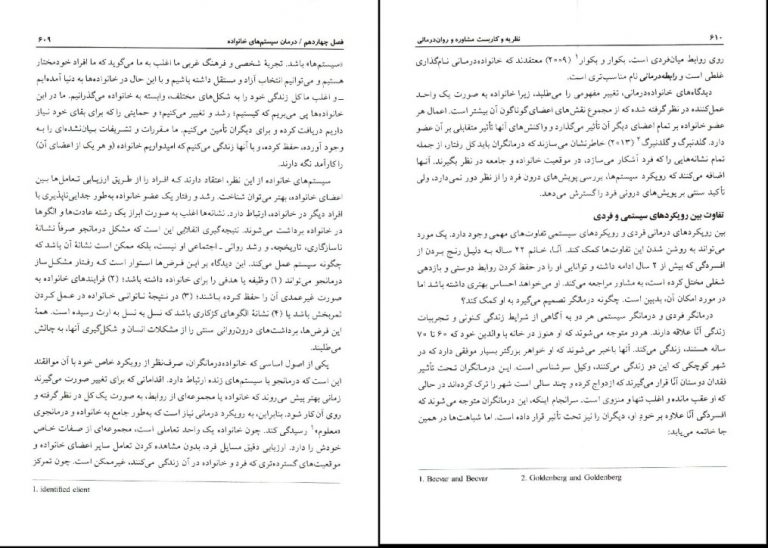 فصل چهاردهم / درمان سیستم‌های خانواده ۶۰۹
«سیستم‌ها» باشد. تجربهٔ شخصی و فرهنگ غربی ما اغلب به ما می‌گوید که ما افراد خودمختار
هستیم و می‌توانیم انتخاب آزاد و مستقل داشته باشیم و با این حال در خانواده‌ها به دنیا آمده‌ایم
ـ و اغلب ما کل زندگی خود را به شکل‌های مختلف، وابسته به خانواده می‌گذرانیم. ما در این
خانواده‌ها پی می‌بریم که کیستیم؛ رشد و تغییر می‌کنیم؛ و حمایتی را که برای بقای خود نیاز
داریم دریافت کرده و برای دیگران تأمین می‌کنیم. ما مقررات و تشریفات بیان‌نشده‌ای را به
وجود آورده، حفظ کرده، و با آنها زندگی می‌کنیم که امیدواریم خانواده (و هر یک از اعضای آن)
را کارآمد نگه دارند.
سیستم‌های خانواده از این نظر، اعتقاد دارند کـه افـراد را از طـریق ارزیـابی تـعامل‌ها بـین
اعضای خانواده، بهتر می‌توان شناخت. رشد و رفتار یک عضو خانواده به‌طور جدایی‌ناپذیری با
افراد دیگر در خانواده، ارتباط دارد. نشانه‌ها اغلب به صورت ابراز یک رشته عادت‌ها و الگوها
در خانواده برداشت می‌شوند. نتیجه‌گیری انقلابی این است که مشکل درمانجو صرفاً نشانهٔ
ناسازگاری، تاریخچه، و رشد روانی ـ اجتماعی او نیست، بلکه ممکن است نشانهٔ آن باشد که
چگونه سیستم عمل می‌کند. این دیدگاه بر این فـرض‌ها اسـتوار است کـه رفـتار مشکل‌ساز
درمانجو می‌تواند (۱) وظیفه یا هدفی را برای خانواده داشته باشد؛ (۲) فرایندهای خانواده به
صورت غیرعمدی آن را حفظ کرده بـاشند؛ (۳) در نـتیجهٔ نـاتوانی خـانواده در عـمل کـردن
ثمربخش باشد یا (۴) نشانهٔ الگوهای کژکاری باشد که نسل به نسل به ارث رسیده است. همهٔ
این فرض‌ها، برداشت‌های درون‌روانی سنتی را از مشکلات انسان و شکل‌گیری آنها، به چالش
می‌طلبند.
یکی از اصول اساسی که خانواده‌درمانگران، صرف‌نظر از رویکرد خاص خود با آن موافقتند
این است که درمانجو با سیستم‌های زنده ارتباط دارد. اقداماتی که برای تغییر صورت می‌گیرند
زمانی بهتر پیش می‌روند که خانواده یا مجموعه‌ای از روابط، به صورت یک کل در نظر گرفته و
روی آن کار شود. بنابراین، به رویکرد درمانی نیاز است که به‌طور جامع به خانواده و درمانجوی
«معلوم»۱ رسیدگی کند. چون خانواده یک واحد تعاملی است، مجموعه‌ای از صفات خـاص
خودش را دارد. ارزیابی دقیق مسایل فرد، بدون مشاهده کردن تعامل سایر اعضای خانواده و
موقعیت‌های گسترده‌تری که فرد و خانواده در آن زندگی می‌کنند، غیرممکن است. چون تمرکز
1. identified client
۶۱۰ نظریه و کاربست مشاوره و روان‌درمانی
روی روابط میان‌فردی است، بکوار و بکوار۱ (۲۰۰۹) معتقدند که خانواده‌درمانی نام‌گذاری
غلطی است و رابطه‌درمانی نام مناسب‌تری است.
دیدگاه‌های خانواده‌درمانی، تغییر مفهومی را می‌طلبد، زیرا خانواده به صورت یک واحـد
عمل‌کننده در نظر گرفته شده که از مجموع نقش‌های اعضای گوناگون آن بیشتر است. اعمال هر
عضو خانواده بر تمام اعضای دیگر آن تأثیر می‌گذارد و واکنش‌های آنها تأثیر متقابلی بر آن عضو
دارد. گلدنبرگ و گلدنبرگ۲ (۲۰۱۳) خاطرنشان می‌سازند که درمانگران باید کل رفتار، از جمله
تمام نشانه‌هایی را که فرد آشکار می‌سازد، در موقعیت خانواده و جامعه در نظر بگیرند. آنـها
اضافه می‌کنند که رویکرد سیستم‌ها، بررسی پویش‌های درون فرد را از نظر دور نمی‌دارد، ولی
تأکید سنتی بر پویش‌های درونی فرد را گسترش می‌دهد.
تفاوت بین رویکردهای سیستمی و فردی
بین رویکردهای درمانی فردی و رویکردهای سیستمی تفاوت‌های مهمی وجود دارد. یک مورد
می‌تواند به روشن شدن این تفاوت‌ها کمک کند. آنا، خـانم ۲۲ سـاله بـه دلیـل رنـج بـردن از
افسردگی که بیش از ۲ سال ادامه داشته و توانایی او را در حفظ کردن روابط دوستی و بازدهی
شغلی مختل کرده است، به مشاور مراجعه می‌کند. او می‌خواهد احساس بهتری داشته باشد اما
در مورد امکان آن، بدبین است. چگونه درمانگر تصمیم می‌گیرد به او کمک کند؟
درمانگر فردی و درمانگر سیستمی هر دو به آگاهی از شرایط زندگی کنونی و تجربیات
زندگی آنّا علاقه دارند. هردو متوجه می‌شوند که او هنوز در خانه با والدین خود که ۶۰ تا ۷۰
ساله هستند، زندگی می‌کند. آنها باخبر می‌شوند که او خواهر بزرگتر بسیار موفقی دارد که در
شهر کوچکی که این دو زندگی می‌کنند، وکیل سرشناسی است. ایـن درمـانگران تـحت تأثـیر
فقدان دوستان آنّا قرار می‌گیرند که ازدواج کرده و چند سالی است شهر را ترک کرده‌اند در حالی
که او عقب مانده و اغلب تنها و منزوی است. سرانجام اینکه، این درمانگران متوجه می‌شوند که
افسردگی آنّا علاوه بر خود او، دیگران را نیز تحت تأثیر قرار داده است. اما شباهت‌ها در همین
جا خاتمه می‌یابد:
1. Becvar and Becvar 2. Goldenberg and Goldenberg